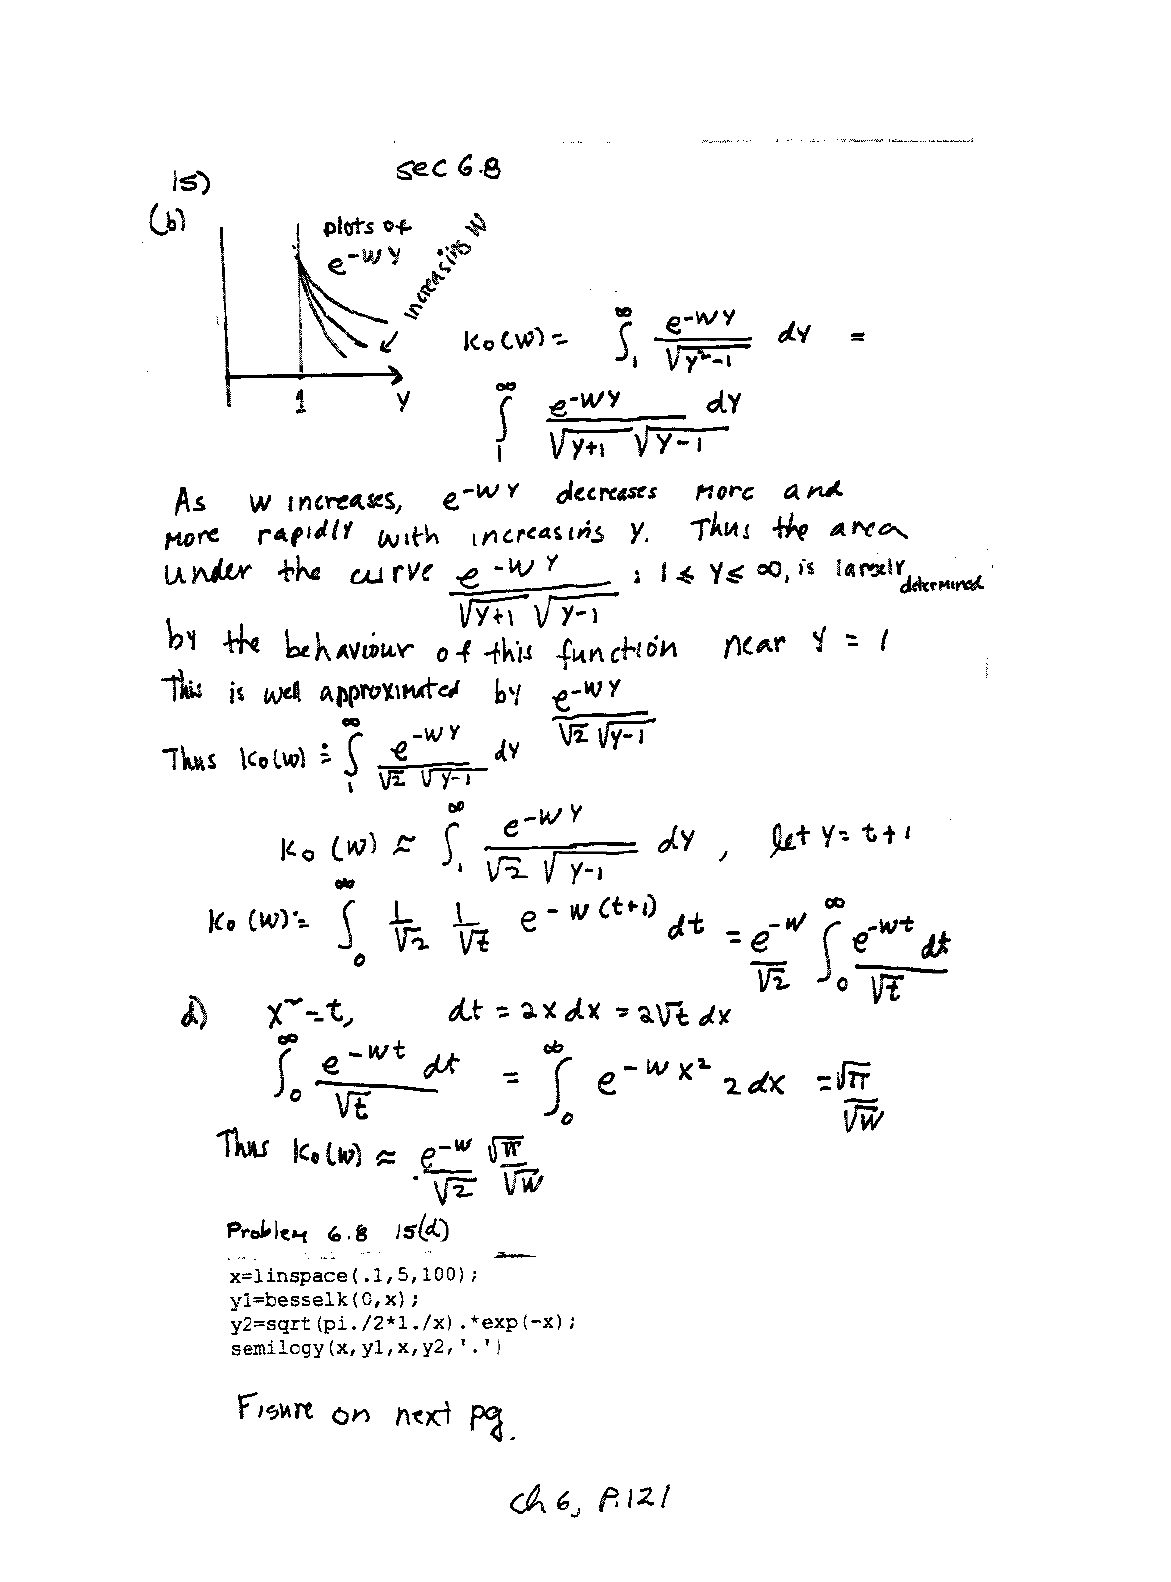 sec 6.8
15)
(b)
plots of
e^{-wy}
increasing w
1
y
K₀(w) = ∫₁^∞ e^{-wy}/√(y²-1) dy =
∫₁^∞ e^{-wy}/(√(y+1) √(y-1)) dy
As w increases, e^{-wy} decreases more and
more rapidly with increasing y. Thus the area
under the curve e^{-wy}/(√(y+1) √(y-1)) ; 1 ≤ y ≤ ∞, is largely determined
by the behaviour of this function near y = 1
This is well approximated by e^{-wy}/(√2 √(y-1))
Thus K₀(w) ≐ ∫₁^∞ e^{-wy}/(√2 √(y-1)) dy
K₀(w) ≈ ∫₁^∞ e^{-wy}/(√2 √(y-1)) dy, let y = t+1
K₀(w) ≐ ∫₀^∞ 1/√2 1/√t e^{-w(t+1)} dt = e^{-w}/√2 ∫₀^∞ e^{-wt}/√t dt
d) x² = t, dt = 2x dx = 2√t dx
∫₀^∞ e^{-wt}/√t dt = ∫₀^∞ e^{-wx²} 2 dx = √π/√w
Thus K₀(w) ≈ e^{-w}/√2 √π/√w
Problem 6.8 15(d)
x=linspace(.1,5,100);
y1=besselk(0,x);
y2=sqrt(pi./2*1./x).*exp(-x);
semilogy(x,y1,x,y2,'.')
Figure on next pg.
ch 6, P.121